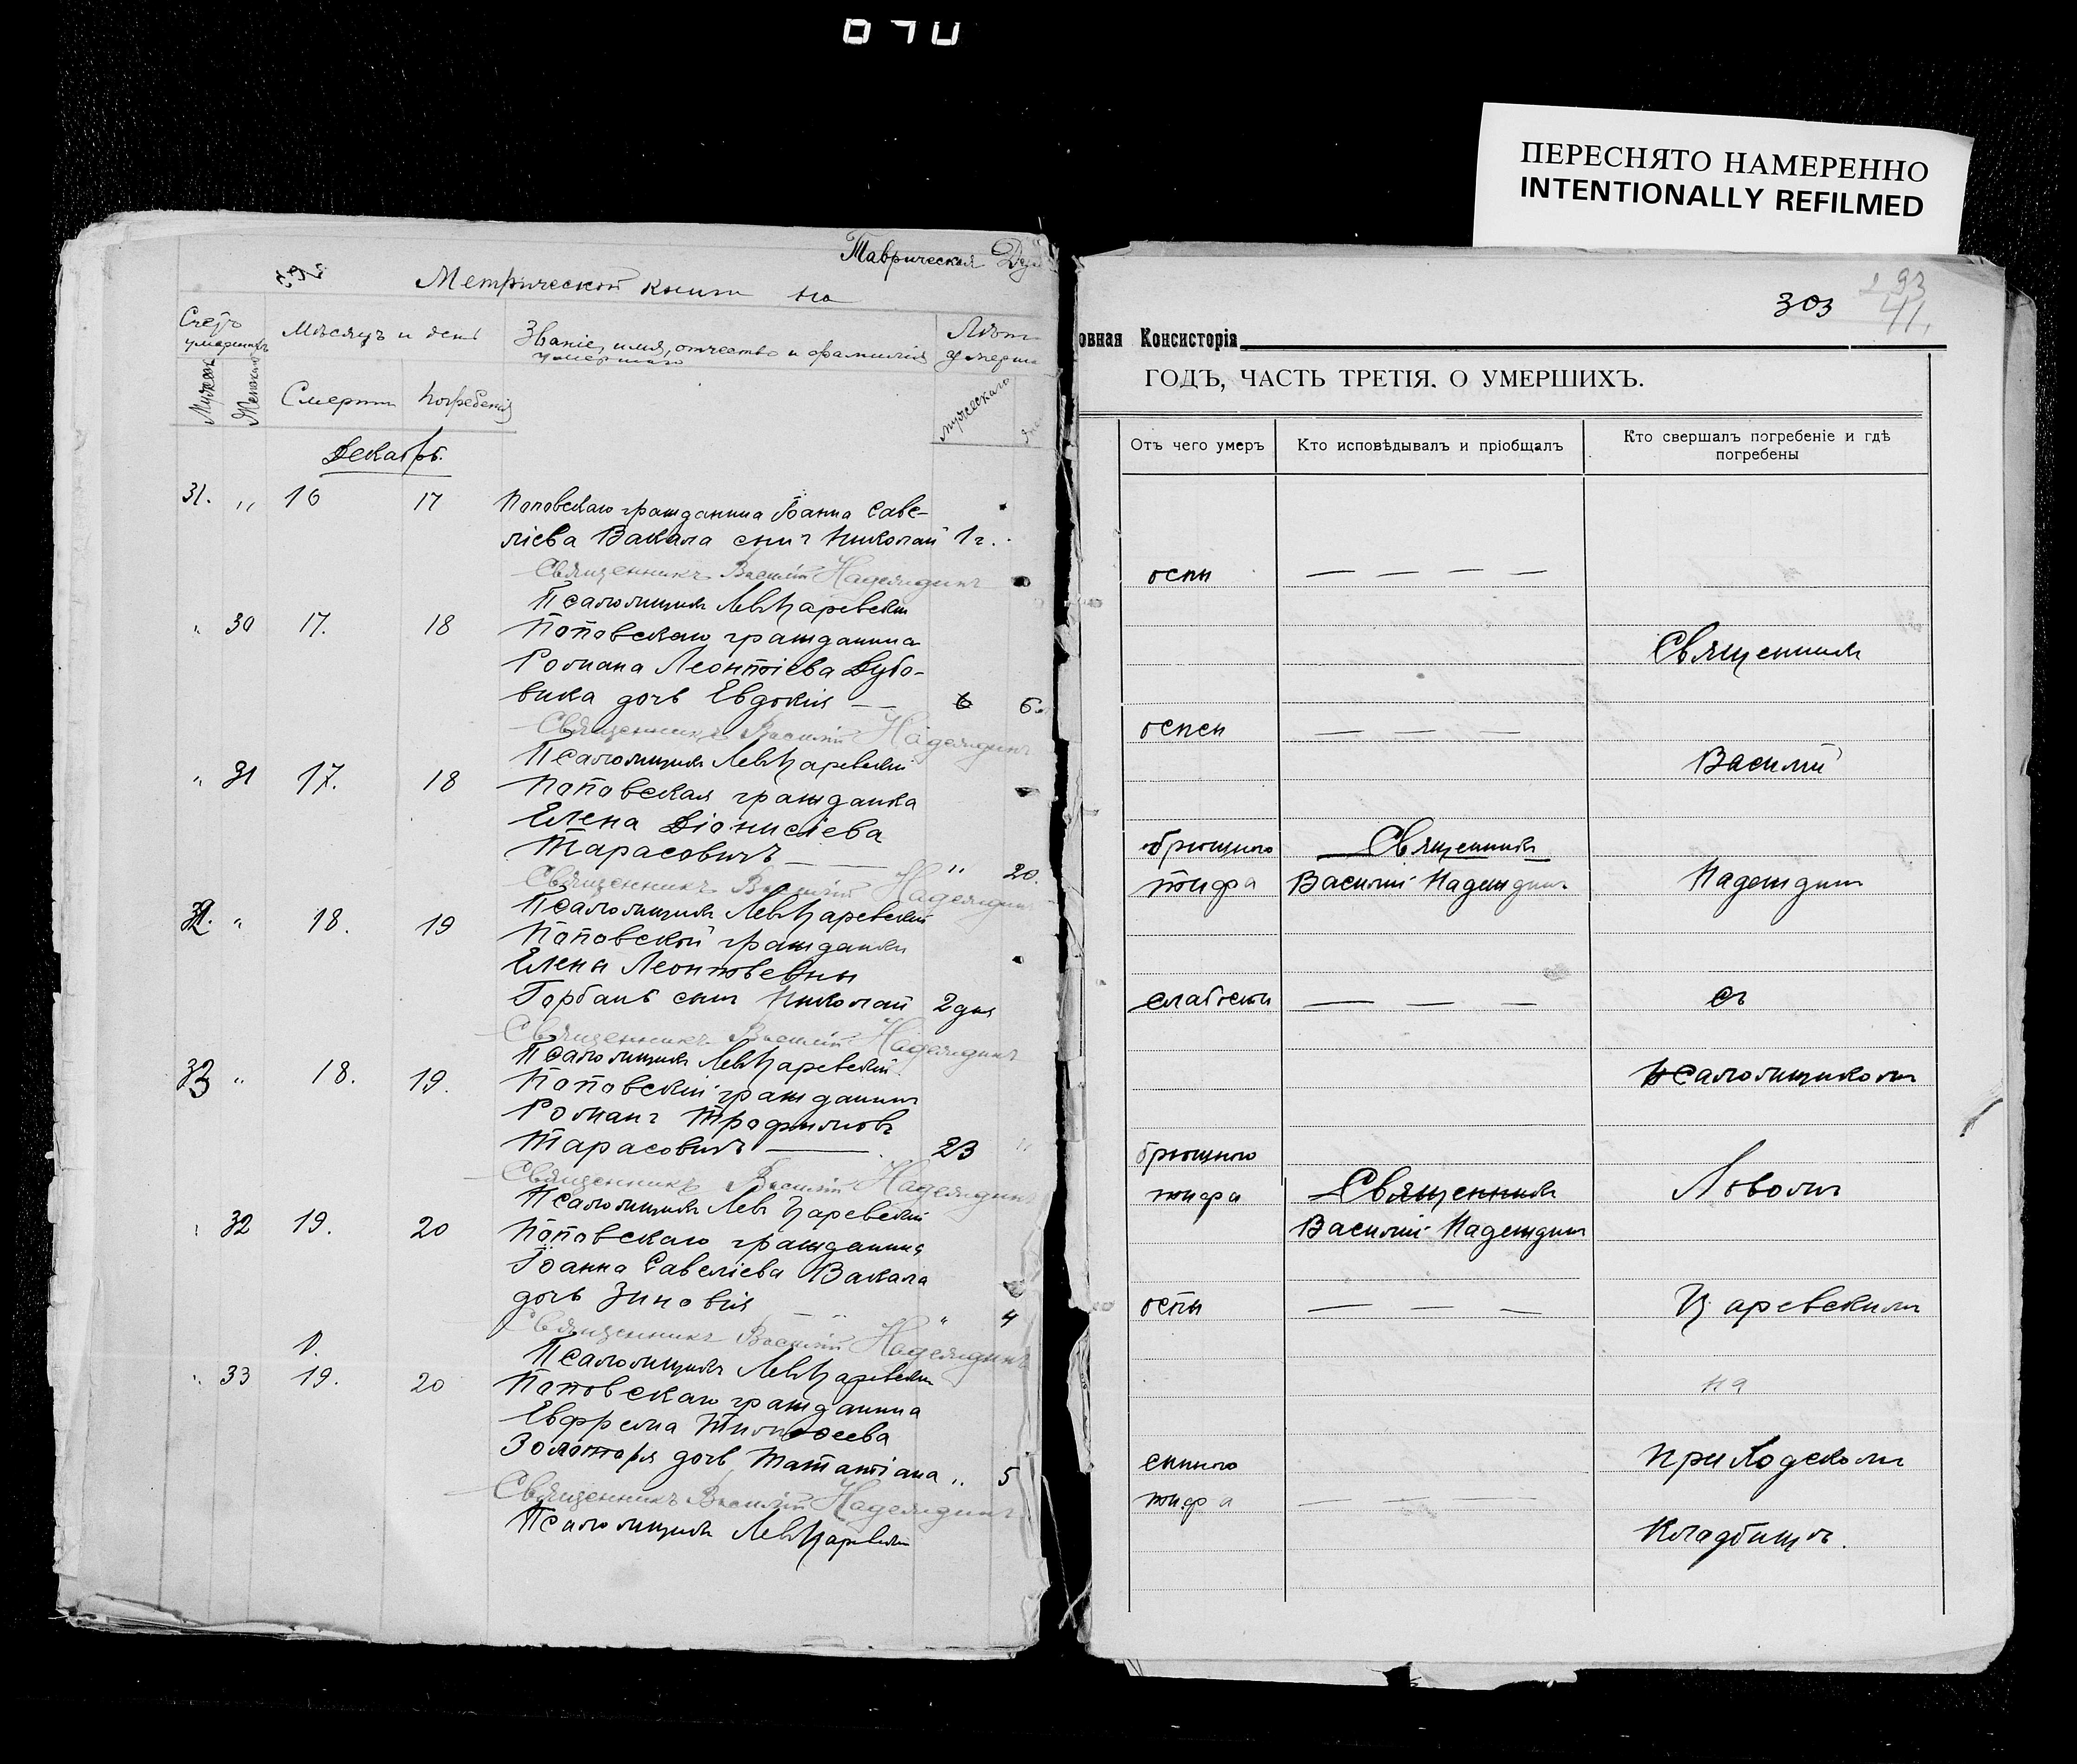 070
ПЕРЕСНЯТО НАМЕРЕННО
INTENTIONALLY REFILMED
Таврическая
Метрической книги на
Счетъ умершихъ
Мѣсяцъ и день
Званіе, имя, отчество и фамилія умершаго
Лѣт
умерш
Мужеск
Женскій
Смерти
Погребенія
мужескаго
Декабрь.
31. „ 16 17 Поповскаго гражданина Іоанна Саве-
ліева Вакала сынъ Николай 1 г.
Священникъ Василій Надеждинъ
Псаломщикъ Левъ Царевскій
„ 30 17. 18 Поповскаго гражданина
Романа Леонтіева Дубо-
вика дочь Евдокія — 6 6
Священникъ Василій Надеждинъ
Псаломщикъ Левъ Царевскій
„ 31 17. 18 Поповская гражданка
Елена Діонисіева
Тарасовичъ — — „ 20.
Священникъ Василій Надеждинъ
Псаломщикъ Левъ Царевскій
32. „ 18. 19 Поповской гражданки
Елены Леонтьевны
Горбань сынъ Николай 2 дня
Священникъ Василій Надеждинъ
Псаломщикъ Левъ Царевскій
33 „ 18. 19. Поповскій гражданинъ
Романъ Трофимовъ
Тарасовичъ — 23 „
Священникъ Василій Надеждинъ
Псаломщикъ Левъ Царевскій
„ 32 19. 20 Поповскаго гражданина
Іоанна Савеліева Вакала
дочь Зиновія — „ 4
Священникъ Василій Надеждинъ
Псаломщикъ Левъ Царевскій
„ 33 19. 20 Поповскаго гражданина
Евфрема Тимофеева
Золотаря дочь Татіана „ 5
Священникъ Василій Надеждинъ
Псаломщикъ Левъ Царевскій
303
293
41.
овная Консисторія
ГОДЪ, ЧАСТЬ ТРЕТІЯ. О УМЕРШИХЪ.
Отъ чего умеръ
Кто исповѣдывалъ и пріобщалъ
Кто свершалъ погребеніе и гдѣ погребены
оспы — — — —
Священникъ
оспы — — —
Василій
брюшного Священникъ
тифа Василій Надеждинъ Надеждинъ
слабости — — — съ
псаломщикомъ
брюшного
тифа Священникъ Львомъ
Василій Надеждинъ
оспы — — — Царевскимъ
на
сыпного приходскомъ
тифа — — —
кладбищѣ.